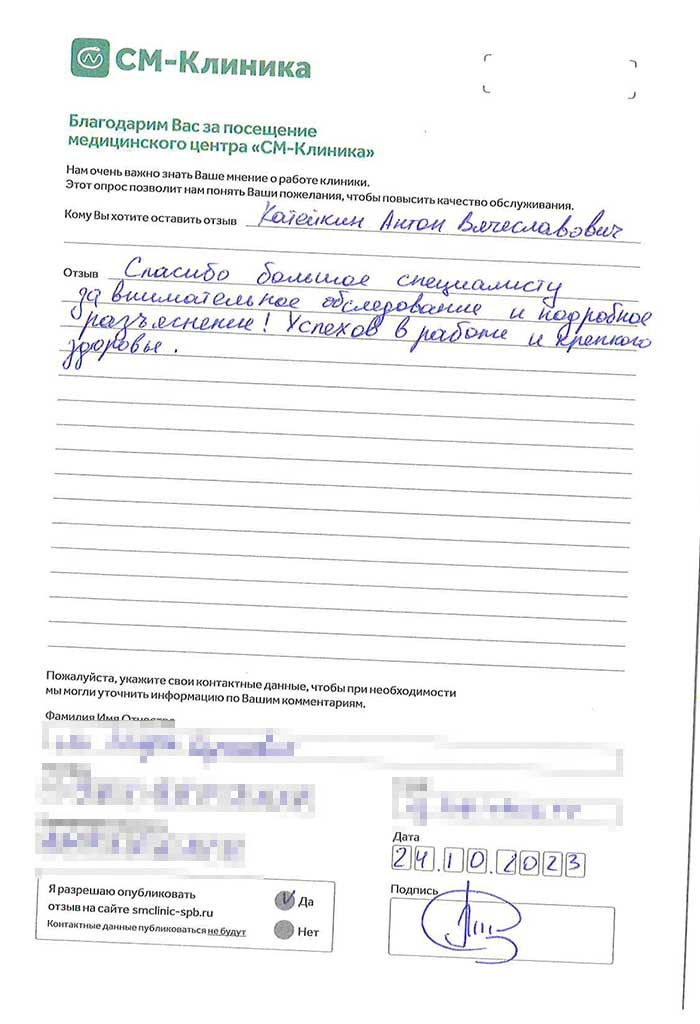 СМ-Клиника
Благодарим Вас за посещение
медицинского центра «СМ-Клиника»
Нам очень важно знать Ваше мнение о работе клиники.
Этот опрос позволит нам понять Ваши пожелания, чтобы повысить качество обслуживания.
Кому Вы хотите оставить отзыв Катейкин Антон Вячеславович
Отзыв Спасибо большое специалисту
за внимательное обследование и подробное
разъяснение! Успехов в работе и крепкого
здоровья.
Пожалуйста, укажите свои контактные данные, чтобы при необходимости
мы могли уточнить информацию по Вашим комментариям.
Фамилия Имя Отчество
Дата
24.10.2023
Я разрешаю опубликовать
отзыв на сайте smclinic-spb.ru
Контактные данные публиковаться не будут
Да
Нет
Подпись